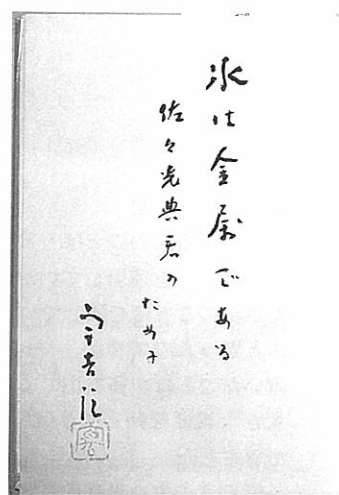 氷は金属である
佐々光典君の
ために
宇吉郎